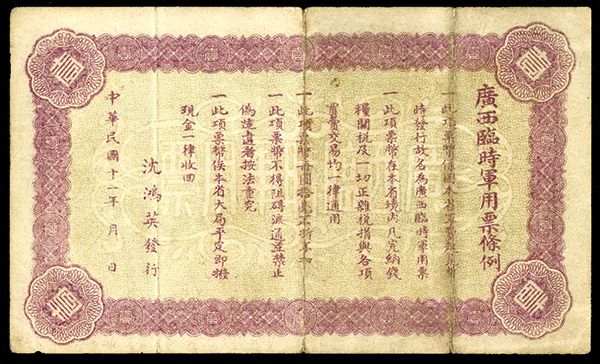 廣西臨時軍用票條例
一此項票幣係因本省軍
時發行故名為廣西臨時軍用票
一此項票幣在本省境內凡完納錢
糧關稅及一切正雜稅捐與各項
買賣交易均一律通用
一此項票幣
一此項票幣不得阻碍流通並禁止
偽造違者按法查究
一此項票幣俟本省大局平定即撥
現金一律收回
沈鴻英發行
中華民國十一年 月 日
壹
壹
壹
壹